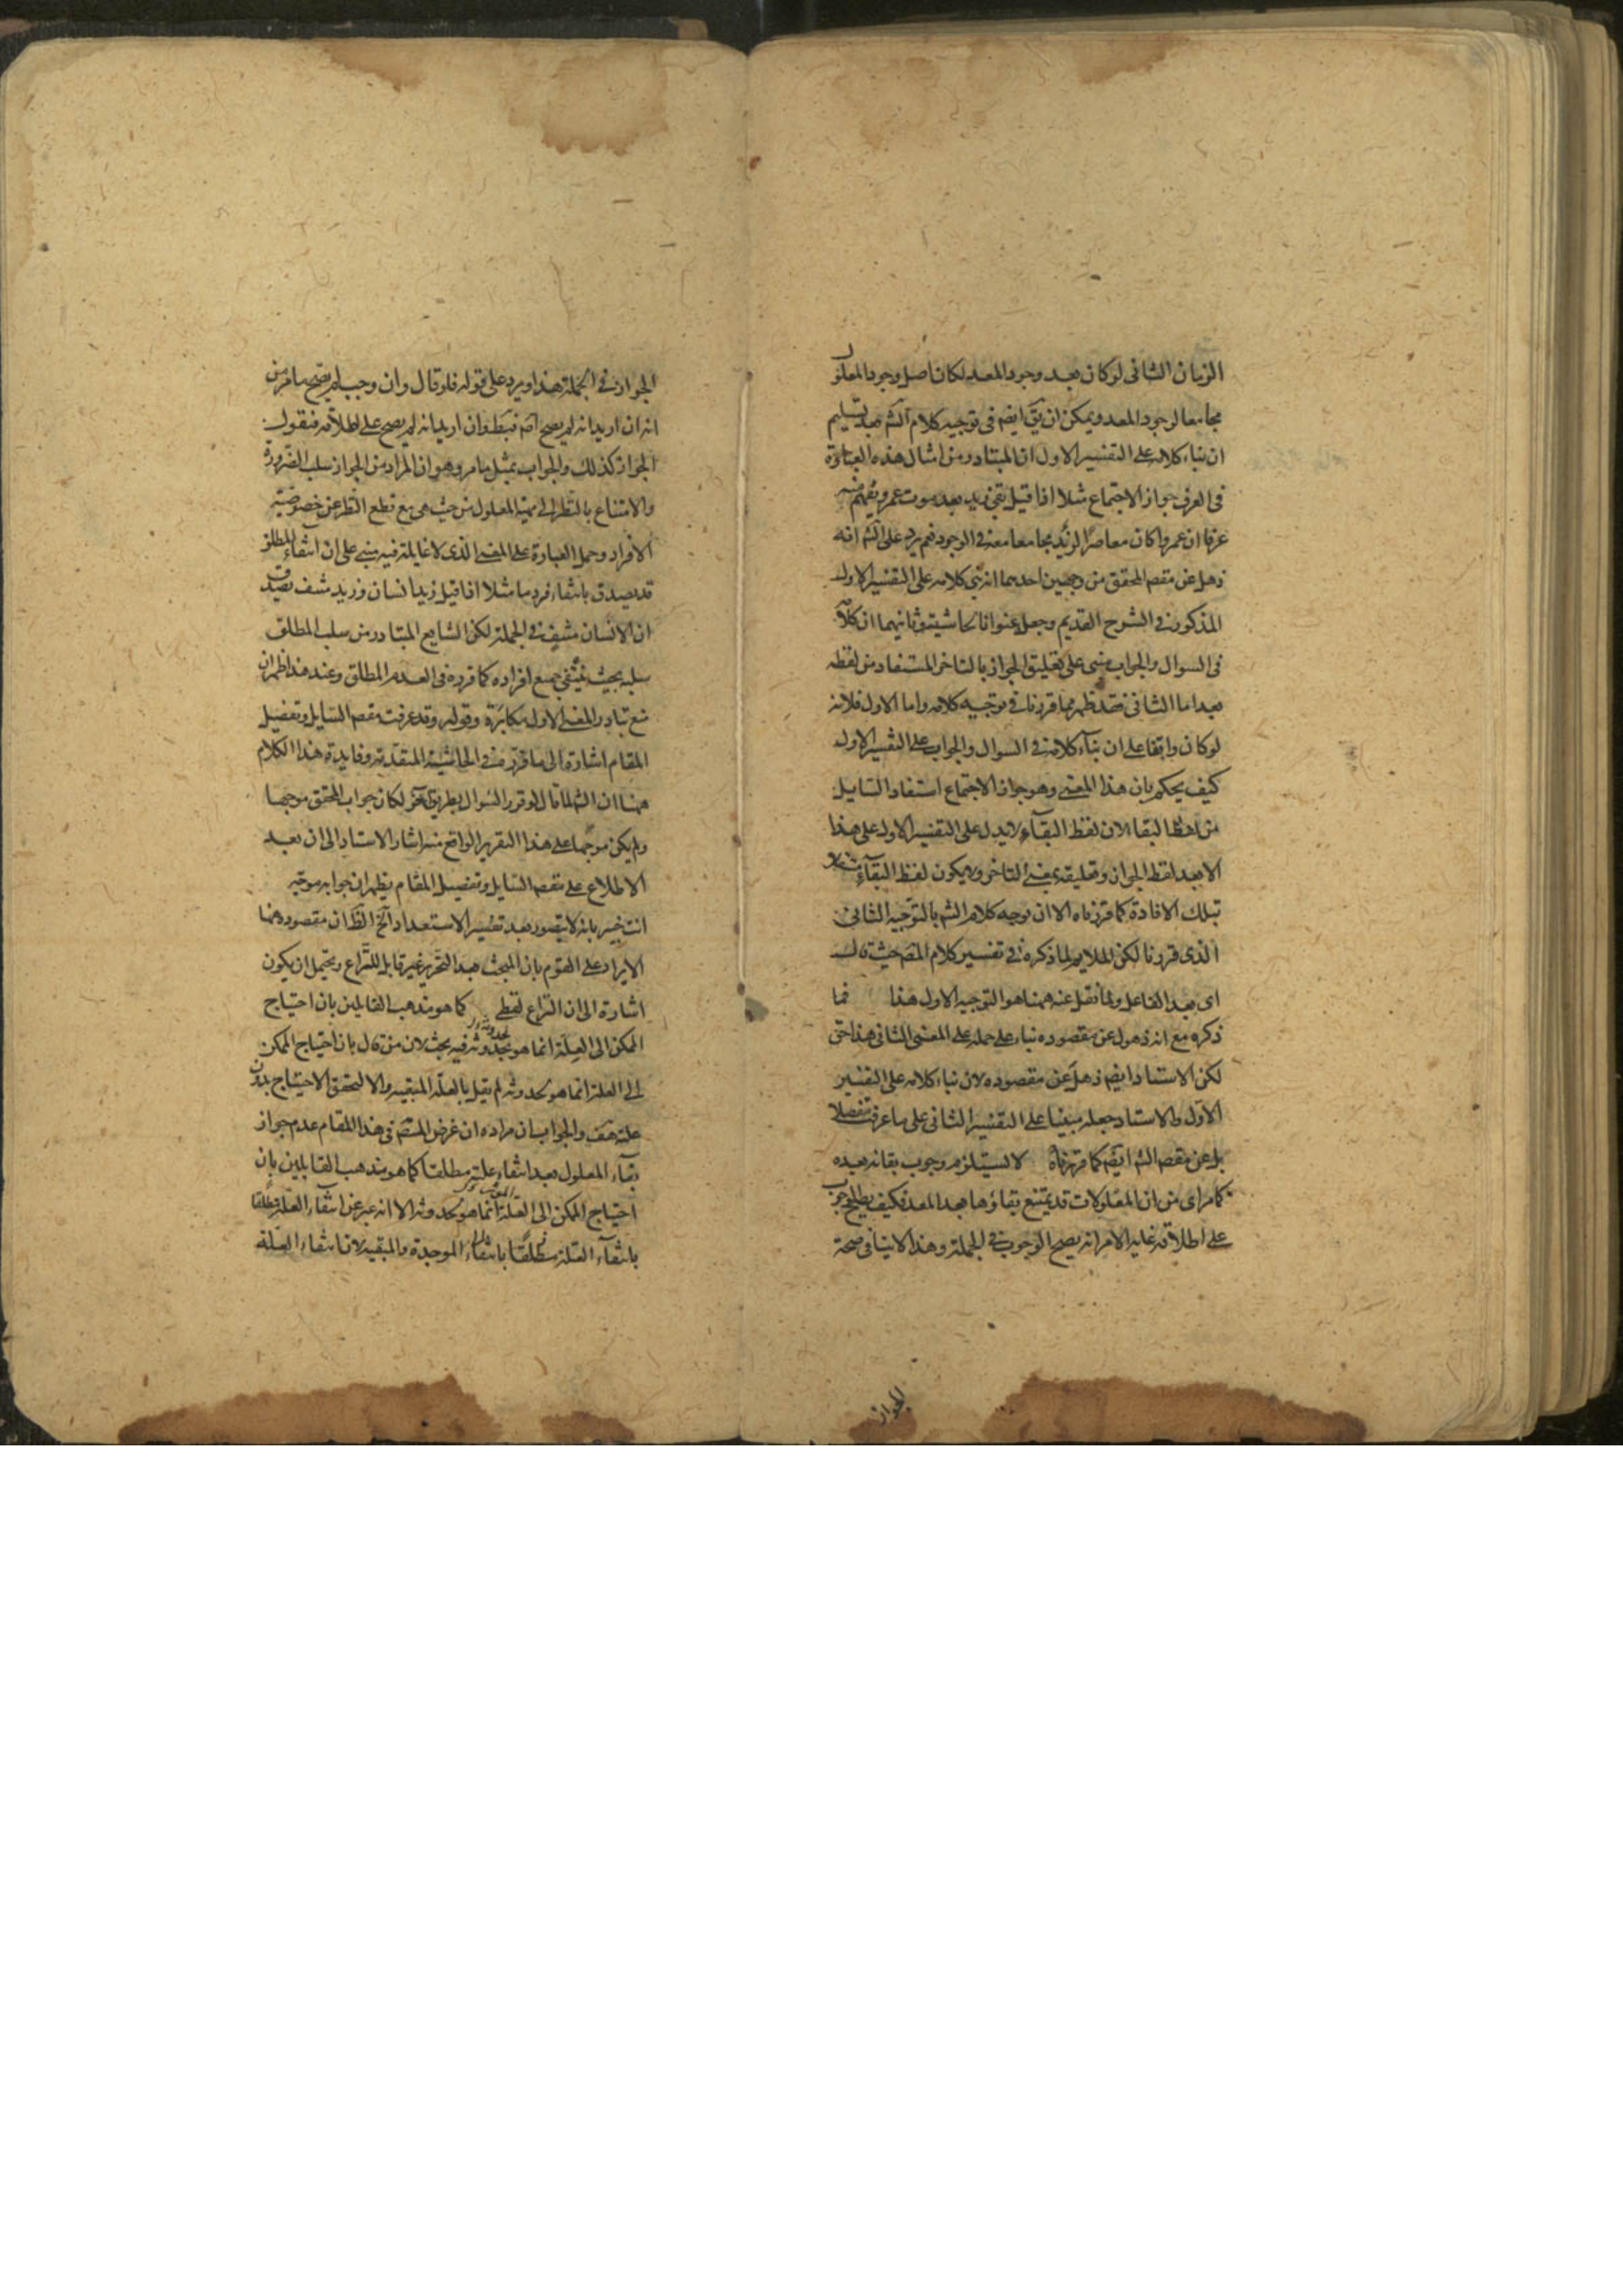 الزمان الثانى لو كان بعد وجود المعد لكان اصل وجود المعلول
مجامعا لوجود المعد ويمكن ان يق ايضم فى توجيه كلام الشم بعد تسليم
ان بناء كلامه على التفسير الاول ان المتبادر من امثال هذه العبارة
فى العرف جواز الاجتماع مثلا اذا قيل بقى زيد بعد موت عمرو يفهم منه
عرفا ان عمروا كان معاصرا لزيد مجامعا معه فى الوجود فم يرد على الشم انه
ذهل عن مقصم المحقق من وجهين احدهما انه بنى كلامه على التفسير الاول
المذكور فى الشرح القديم وجعله عنوانا لحاشيته وثانيهما ان كلامه
فى السوال والجواب مبنى على تعليق الجواز بالتاخر المستفاد من لفظه
بعد اما الثانى فقد ظهر مما قررنا فى توجيه كلامه واما الاول فلانه
لو كان واقفا على ان بناء كلامه فى السوال والجواب على التفسير الاول
كيف يحكم بان هذا المعنى وهو جواز الاجتماع استفاد السايل
من لفظ البقا لان لفظ البقاء لا يدل على التفسير الاول على هذا
الا بعد لفظ الجواز وتعليقه بمعنى التاخر ولا يكون لفظ البقاء
تبلك الافادة كما قررناه الا ان توجه كلام الشم بالتوجيه الثانى
الذى قررنا لكن الملايم لما ذكره فى تفسير كلام المصم حيث قال
اى بعد الفاعل ولما نقل عنه همنا هو التوجيه الاول هذا فما
ذكره مع انه ذهول عن مقصوده بناء على حمله على المعنى الثانى هذا حتى
لكن الاستاد ايضم ذهل عن مقصوده لان بناء كلامه على التفسير
الاول والاستاد جعله مبينا على التفسير الثانى على ما عرفت مفصلا
بل عن مقصم الشم ايضم كما قررناه لا يستلزم وجوب بقائه بعده
كما مر اى من ان المعلولات قد يمتنع بقاؤها بعد المعد فكيف يصح وجوب
على اطلاقه غايه الامر انه يصح الوجوب فى الجملة وهذا لا ينافى صحة
الجواز
الجواز فى الجملة هذا ويرد على قوله فلو قال وان وجب لم يصح ما مر من
انه ان اريد انه لم يصح اصم فبط وان اريد انه لم يصح على اطلاقه فنقول
الجواز كذلك والجواب بمثل ما مر وهو ان المراد من الجواز سلب الضرورة
والامتناع بالنظر الى مهية المعلول من حيث هى مع قطع النظر عن خصوصية
الافراد وحمل العبارة على المعنى الذى لا غايلة فيه مبنى على ان انتفاء المطلق
قد يصدق بانتفاء فرد ما مثلا اذا قيل زيد انسان وزيد منتف يصدق
ان الانسان منتف فى الجملة لكن الشايع المتبادر من سلب المطلق
سلبه بحيث ينتفى جميع افراده كما قرره فى العدم المطلق وعند هذا ظهر ان
منع تبادر المعنى الاول مكابرة وقوله وقد عرفت مقصم السايل وتفصيل
المقام اشارة الى ما قرره فى الحاشية المتقدمة وفايدة هذا الكلام
همنا ان الشم لما قال لو قرر السوال بطريق آخر لكان جواب المحقق موجها
ولم يكن موجها على هذا التقرير الواقع منه اشار الاستاد الى ان بعد
الاطلاع على مقصم السايل وتفصيل المقام يظهر ان جوابه موجه
انت خبير بانه لا يتصور بعد تفسير الاستعداد آلخ الظ ان مقصوده همنا
الايراد على القوم بان المبحث بعد التحرير غير قابل للنزاع ويحتمل ان يكون
اشارة الى ان النزاع لفظى كما هو مذهب القائلين بان احتياج
الممكن الى العلة انما هو لحدوثه فيه بحث لان من قال بان احتياج الممكن
الى العلة انما هو لحدوثه لم يقل بالعلة المبقيه والا لتحقق الاحتياج بدون
علته هف والجواب ان مراده ان غرض المصم فى هذا المقام عدم جواز
بقاء المعلول بعد انتفاء علته مطلقا كما هو مذهب القايلين بان
احتياج الممكن الى العلة انما هو لحدوثه الا انه عبر عن انتفاء العلة مطلقا
بانتفاء العلة مطلقا بانتفاء الموجدة والمبقيه لان انتفاء العلة